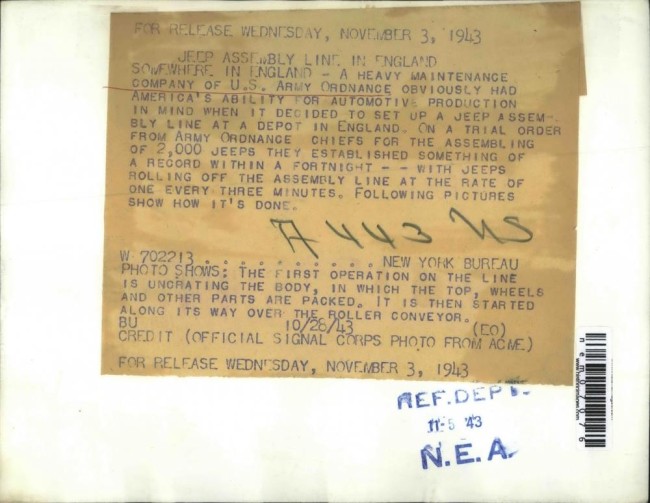 FOR RELEASE WEDNESDAY, NOVEMBER 3, 1943
JEEP ASSEMBLY LINE IN ENGLAND
SOMEWHERE IN ENGLAND - A HEAVY MAINTENANCE
COMPANY OF U.S. ARMY ORDNANCE OBVIOUSLY HAD
AMERICA'S ABILITY FOR AUTOMOTIVE PRODUCTION
IN MIND WHEN IT DECIDED TO SET UP A JEEP ASSEM-
BLY LINE AT A DEPOT IN ENGLAND. ON A TRIAL ORDER
FROM ARMY ORDNANCE CHIEFS FOR THE ASSEMBLING
OF 2,000 JEEPS THEY ESTABLISHED SOMETHING OF
A RECORD WITHIN A FORTNIGHT - - WITH JEEPS
ROLLING OFF THE ASSEMBLY LINE AT THE RATE OF
ONE EVERY THREE MINUTES. FOLLOWING PICTURES
SHOW HOW IT'S DONE.
A 443 US
W 702213 . . . . . . . . . . . NEW YORK BUREAU
PHOTO SHOWS: THE FIRST OPERATION ON THE LINE
IS UNCRATING THE BODY, IN WHICH THE TOP, WHEELS
AND OTHER PARTS ARE PACKED. IT IS THEN STARTED
ALONG ITS WAY OVER THE ROLLER CONVEYOR.
BU 10/26/43 (EO)
CREDIT (OFFICIAL SIGNAL CORPS PHOTO FROM ACME)
FOR RELEASE WEDNESDAY, NOVEMBER 3, 1943
REF. DEPT.
43
N.E.A.